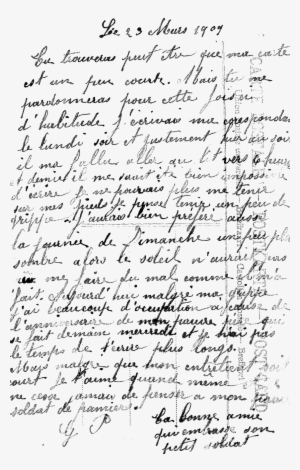 Le 23 Mars 1909
Tu trouveras peut être que ma carte
est un peu courte. Mais tu me
pardonneras pour cette fois
d'habitude j'écrivais ma correspondance
le lundi soir et justement hier au soir
il m'a fallu aller au lit vers 6 heures
et demie il me sauit été bien impossible
d'écrire je ne pouvais plus me tenir
sur mes pieds je pense tenir un peu de
grippe. J'aurais bien préféré aussi
la journée de Dimanche un peu plus
sombre alors le soleil n'aurait pas
me faire du mal comme il m'a
fait. Aujourd'hui malgré ma grippe
j'ai beaucoup d'occupation a cause de
l'anniversaire de mon pauvre qui
se fait demain mercredi et je n'ai pas
le temps de t'écrire plus longs.
Mais malgre que mon entretien soit
court je t'aime quand meme
ne cesse jamais de penser a mon
soldat de
G P
Ta bonne amie
qui embrasse son
petit soldat